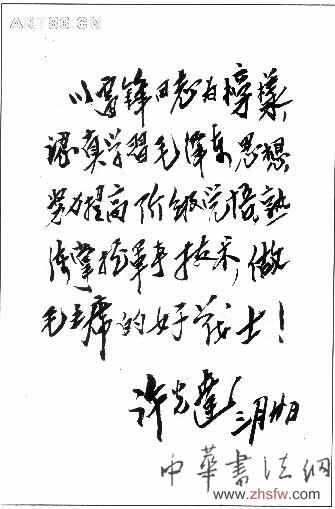 ART86.CN
以雷锋同志为榜样,
认真学习毛泽东思想,
努力提高阶级觉悟,熟
练掌握军事技术,做
毛主席的好战士!
许光达
三月廿日
中华书法网
www.zhsfw.com